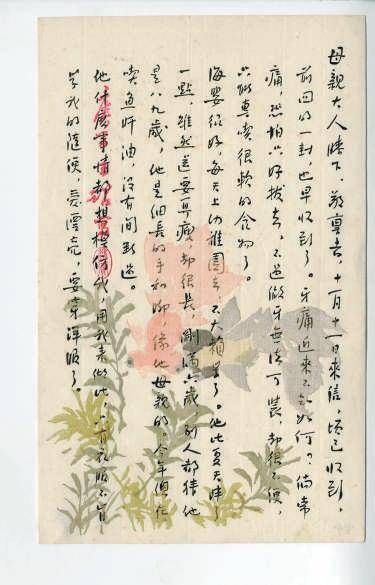 母親大人膝下,敬稟者,十一月十一日來信,頃已收到,
前回的一封,也早收到了。牙痛近來不知如何?倘常
痛,恐怕只好拔去,不過做牙無法可裝,却很不便,
只能專喫很軟的食物了。
海嬰很好,每天上幼稚園去,不大賴學了。他比夏天胖了
一點,雖然還要算瘦,却很長,剛滿六歲,別人都猜他
是八九歲,他是細長的手和脚,像他母親的。今年總在
喫魚肝油,沒有間斷過。
他什麼事情都想模仿我,用我來做比,只有衣服不肯
學我的隨便,愛漂亮,要穿洋服了。